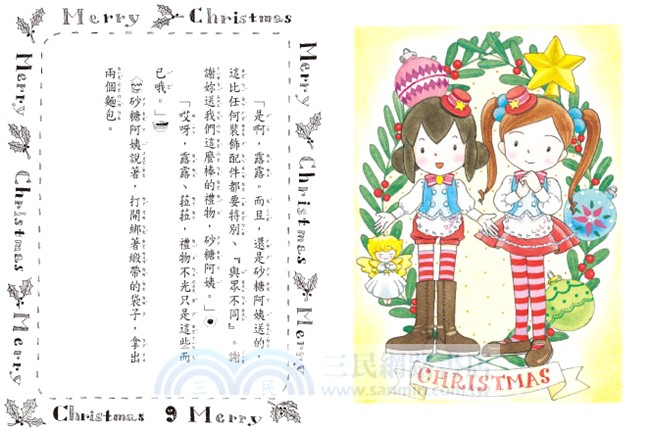 Merry Christmas
Merry Christmas Merry
「是啊，露露。而且，還是砂糖阿姨送的，
這比任何裝飾配件都要特別、『與眾不同』。謝
謝妳送我們這麼棒的禮物，砂糖阿姨。」
「哎呀，露露、菈菈，禮物不光只是這些而
已哦。」
砂糖阿姨說著，打開綁著緞帶的袋子，拿出
兩個麵包。
Merry Christmas Merry
Christmas 9 Merry
CHRISTMAS
三民網路書店
三 民
www.sanmin.com.tw